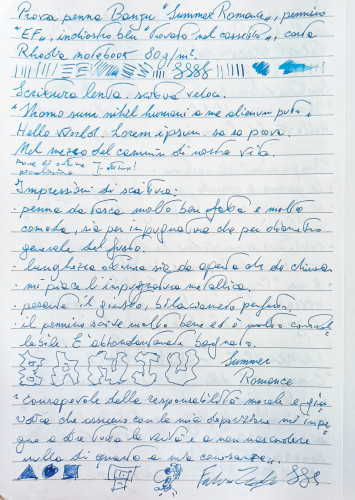 Prova penna Banzu "Summer Romance", pennino
"EF", inchiostro blu "trovato nel cassetto", carta
Rhodia notebook 80g/m².
Scrittura lenta. scrittura veloce.
"Homo sum nihil humani a me alienum puto"
Hello World. Lorem ipsum. sa sa prova.
Nel mezzo del cammin di nostra vita.
prove di scrittura piccolissima
7- ottimo!
Impressioni di scrittura:
· penna da tasca molto ben fatta e molto
comoda, sia per impugnatura che per diametro
generale del fusto.
· lunghezza ottima sia da aperta che da chiusa
· mi piace l'impugnatura metallica,
· pesante il giusto, bilanciamento perfetto,
· il pennino scrive molto bene ed è molto control=
labile. È abbondantemente bagnato.
BANZU
Summer
Romance
"Consapevole della responsabilità morale e giu=
ridica che assumo con la mia deposizione mi impe=
gno a dire tutta la verità e a non nascondere
nulla di quanto a mia conoscenza..